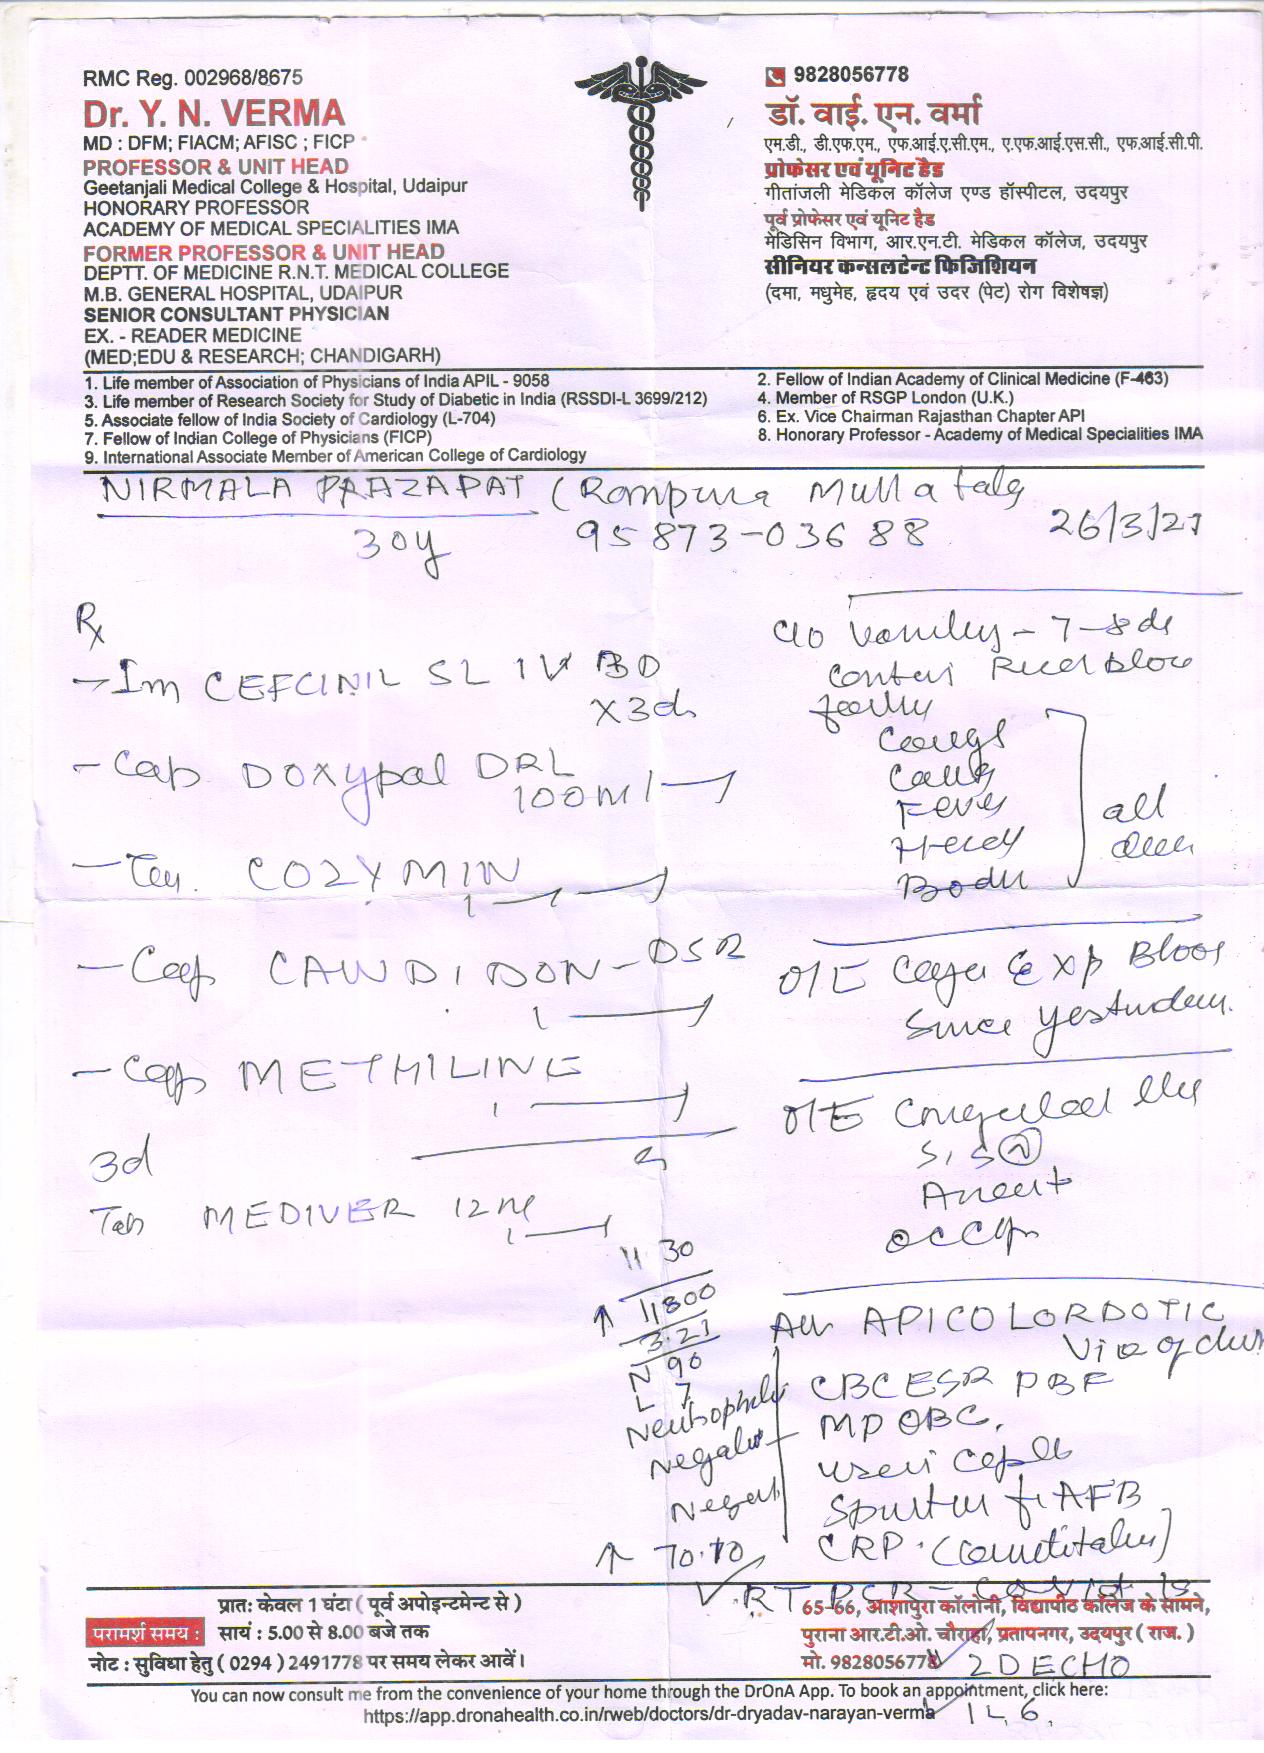 RMC Reg. 002968/8675
Dr. Y. N. VERMA
MD : DFM; FIACM; AFISC ; FICP
PROFESSOR & UNIT HEAD
Geetanjali Medical College & Hospital, Udaipur
HONORARY PROFESSOR
ACADEMY OF MEDICAL SPECIALITIES IMA
FORMER PROFESSOR & UNIT HEAD
DEPTT. OF MEDICINE R.N.T. MEDICAL COLLEGE
M.B. GENERAL HOSPITAL, UDAIPUR
SENIOR CONSULTANT PHYSICIAN
EX. - READER MEDICINE
(MED;EDU & RESEARCH; CHANDIGARH)
9828056778
डॉ. वाई. एन. वर्मा
एम.डी., डी.एफ.एम., एफ.आई.ए.सी.एम., ए.एफ.आई.एस.सी., एफ.आई.सी.पी.
प्रोफेसर एवं यूनिट हैड
गीतांजली मेडिकल कॉलेज एण्ड हॉस्पीटल, उदयपुर
पूर्व प्रोफेसर एवं यूनिट हैड
मेडिसिन विभाग, आर.एन.टी. मेडिकल कॉलेज, उदयपुर
सीनियर कन्सलटेन्ट फिजिशियन
(दमा, मधुमेह, हृदय एवं उदर (पेट) रोग विशेषज्ञ)
1. Life member of Association of Physicians of India APIL - 9058
2. Fellow of Indian Academy of Clinical Medicine (F-463)
3. Life member of Research Society for Study of Diabetic in India (RSSDI-L 3699/212)
4. Member of RSGP London (U.K.)
5. Associate fellow of India Society of Cardiology (L-704)
6. Ex. Vice Chairman Rajasthan Chapter API
7. Fellow of Indian College of Physicians (FICP)
8. Honorary Professor - Academy of Medical Specialities IMA
9. International Associate Member of American College of Cardiology
NIRMALA PRAZAPAT (Rampura
30y 95873-03688 26/3/21
Rx
CEFCINIL SL IV BD
x 3d
- Cap DOXYpal DRL
100
COZYMIN
1
- Cap DON-DSR
1
- Cap METHILINE
1
3d
Tab MEDIVER 12
1
c/o 7-8
Fever
Body
all
O/E Exp Blood
Since yesterday
O/E
S1 S2 N
30
↑ 11800
3.21
N 90
L 7
Neutrophils
↑ 70.70
Adv APICOLORDOTIC
View of
CBC ESR PBF
MP QBC
Sputum for AFB
CRP
RT PCR - Covid 19
2D ECHO
IL6
परामर्श समय :
प्रातः केवल 1 घंटा ( पूर्व अपोइन्टमेन्ट से )
सायं : 5.00 से 8.00 बजे तक
नोट : सुविधा हेतु ( 0294 ) 2491778 पर समय लेकर आवें।
65-66, आशापुरा कॉलोनी, विद्यापीठ कॉलेज के सामने,
पुराना आर.टी.ओ. चौराहा, प्रतापनगर, उदयपुर ( राज. )
मो. 9828056778
You can now consult me from the convenience of your home through the DrOnA App. To book an appointment, click here:
https://app.dronahealth.co.in/rweb/doctors/dr-dryadav-narayan-verma